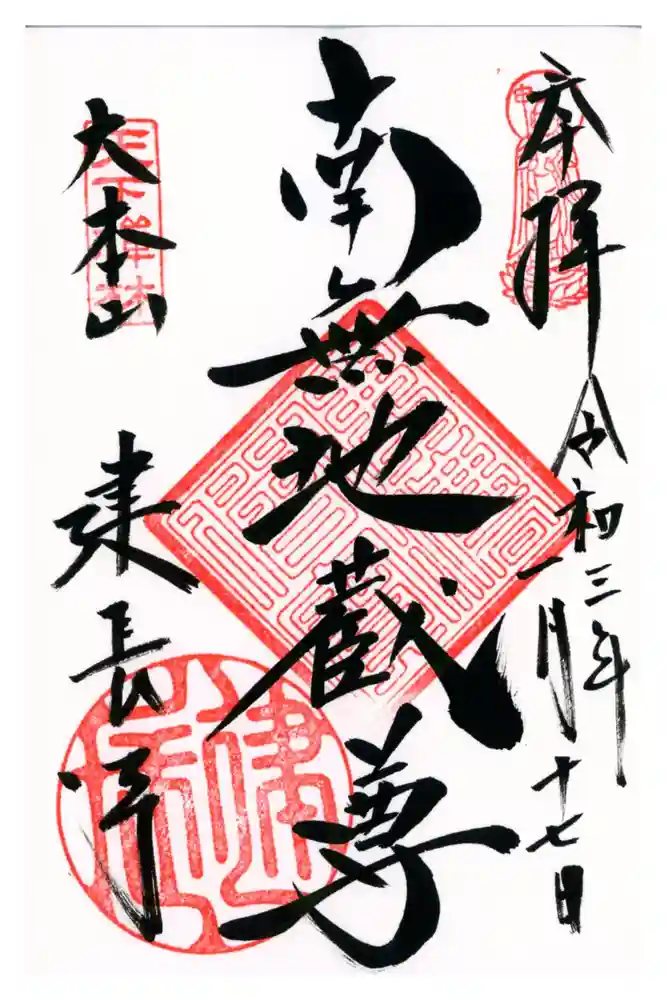 奉拝 令和三年
一月十七日
南無地蔵尊
大本山
建長寺
天下禅林